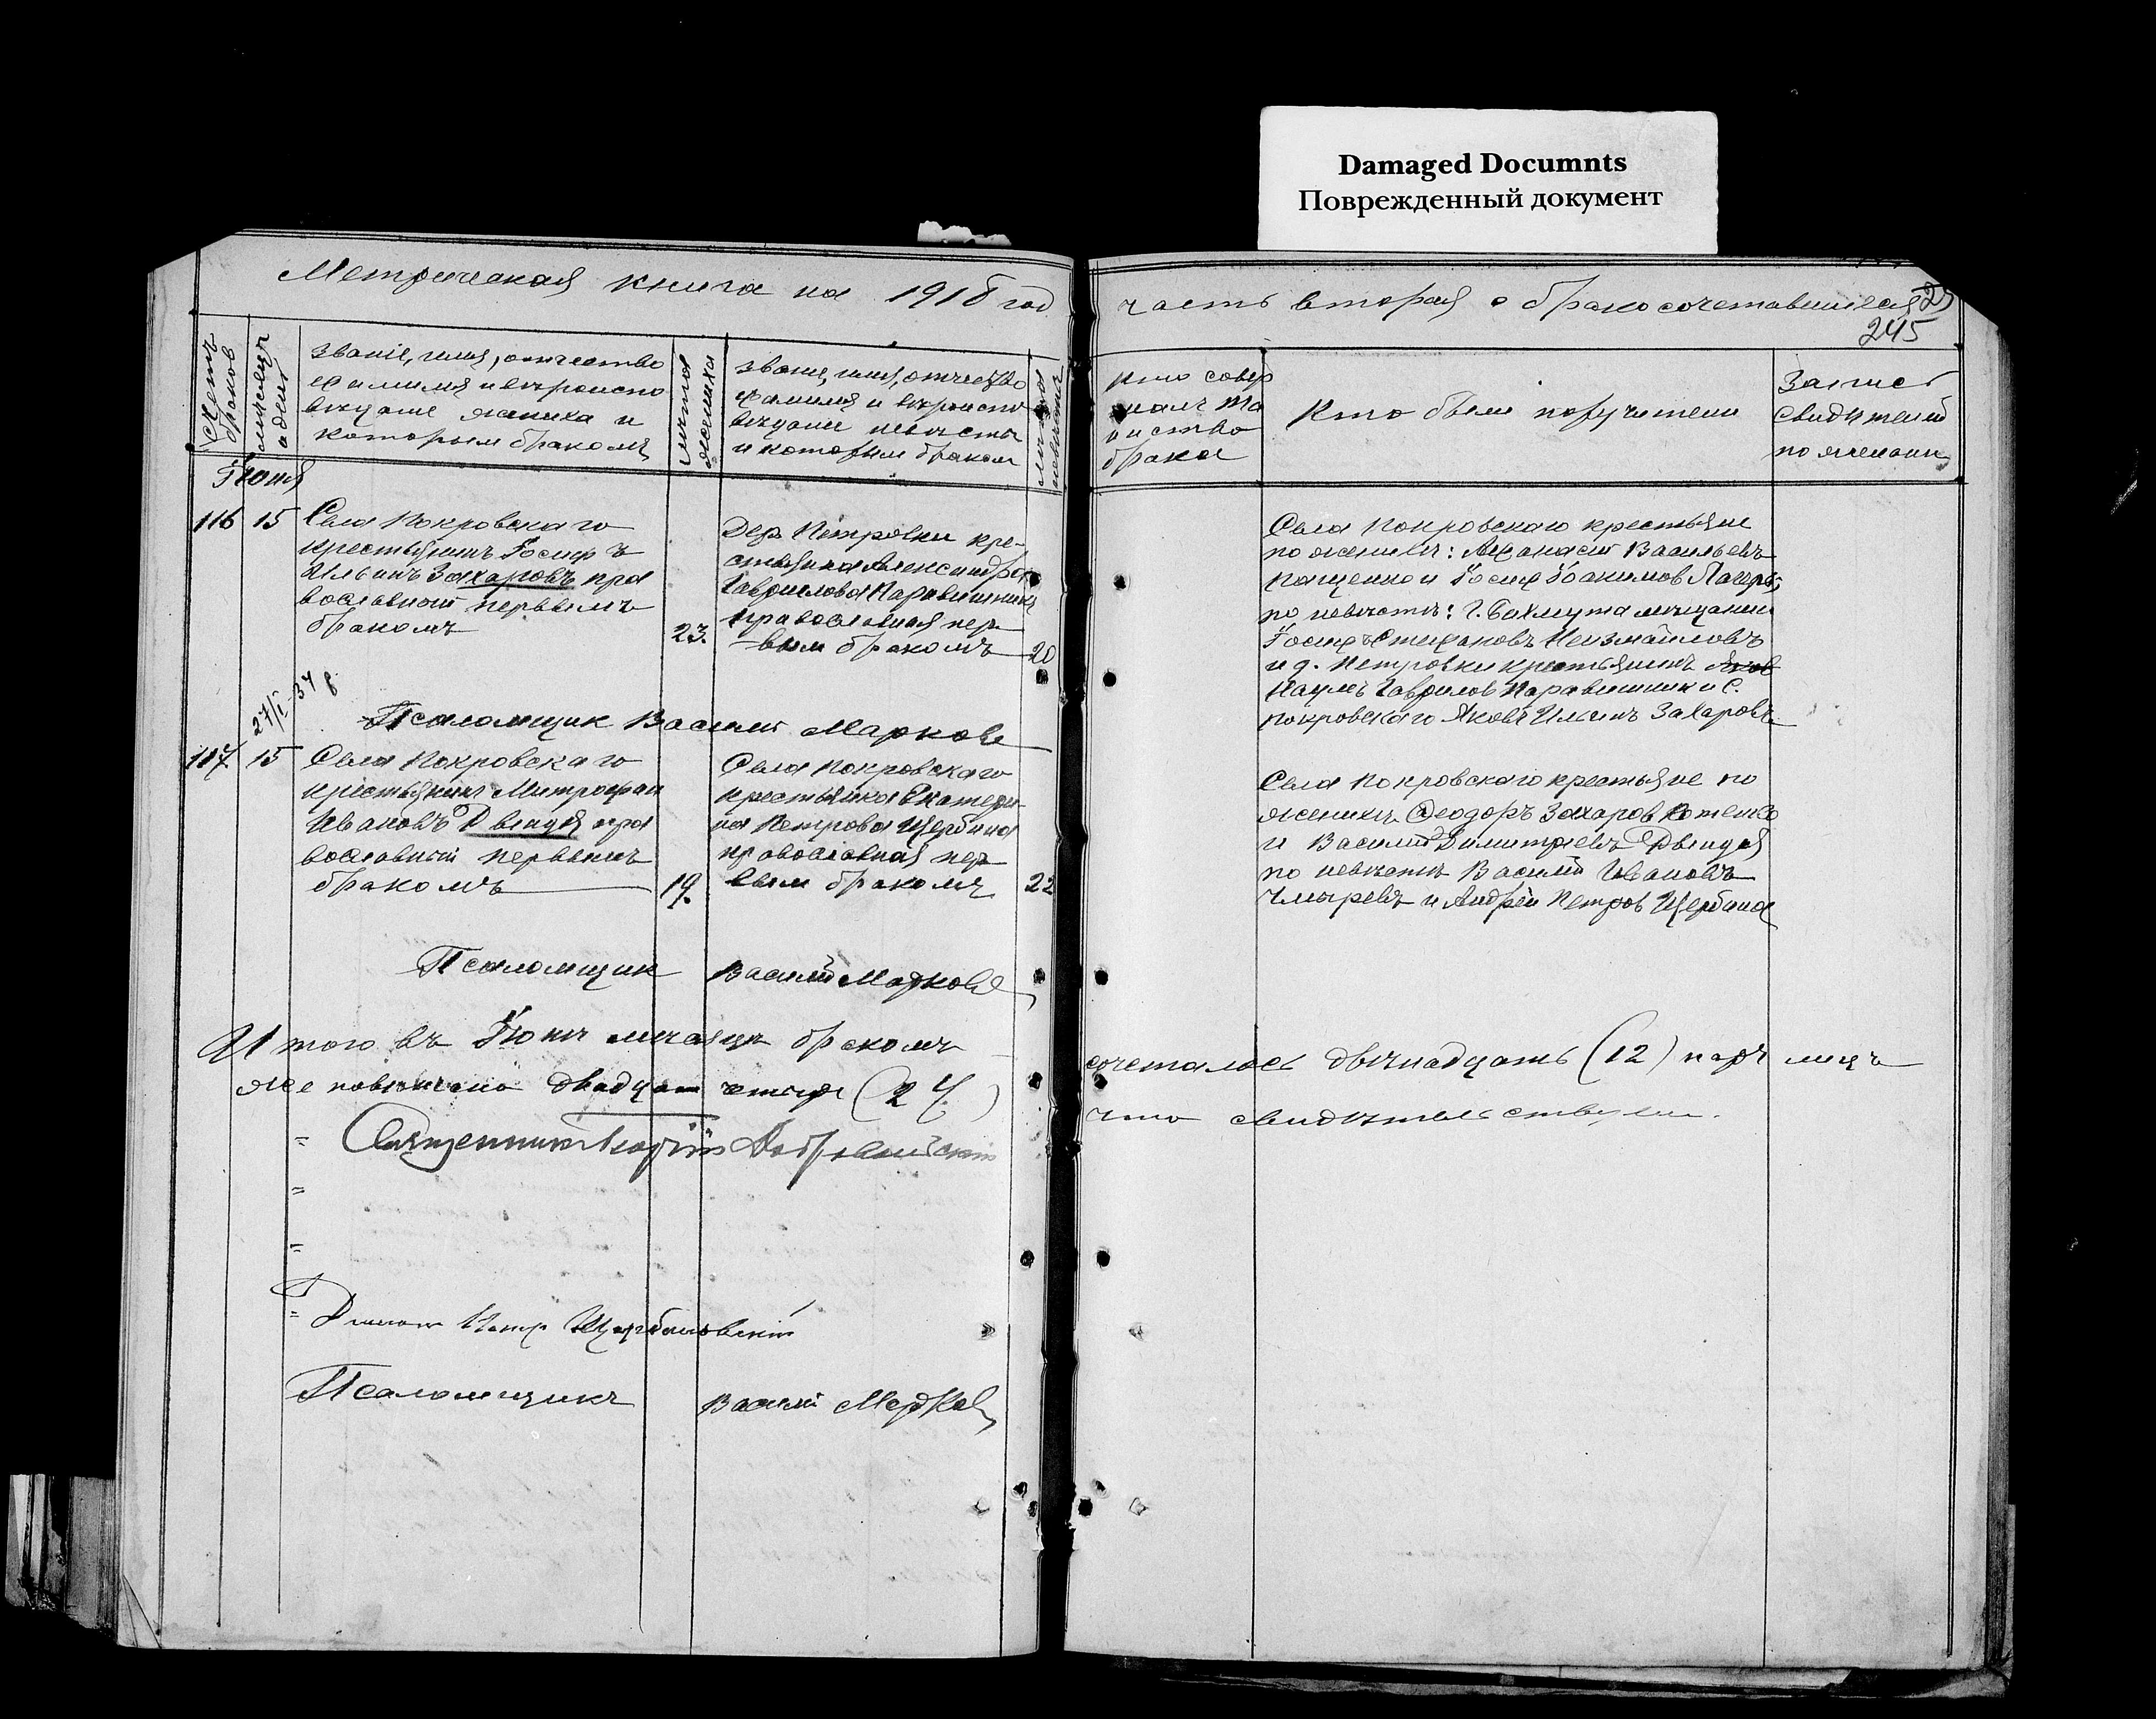 Damaged Documnts
Поврежденный документ
Метрическая книга на 1918 год
часть вторая о бракосочетавшихся
245
Счетъ браков
месяцъ и день
званіе, имя, отчество
фамилия и вероиспо
ведание жениха и
которым бракомъ
лета жениха
звание, имя, отчество
фамилия и вероиспо
ведание невесты
и которым браком
лета невесты
кто совер
шалъ та
инство
брака
Кто были поручители
Запись
свидетелей
по желанию
Іюнь
116 15
Села Покровскаго
крестьянинъ Іосифъ
Ильинъ Захаровъ пра
вославный первымъ
бракомъ
23.
Дер. Петровки кре-
стьянка Александра
Гаврилова Каравишник
православная пер-
вым бракомъ
20
Села Покровскаго крестьяне
по жениху: Афанасий Васильевъ
Пащенко и Іосиф Іоакимов
по невесте: г. Бахмута мещанин
Іосифъ Стефановъ Неизмайловъ
и д. Петровки крестьянинъ Яков
Наумъ Гаврилов Каравишник и с.
Покровскаго Яковъ Ильинъ Захаровъ
27/I-34 г
Псаломщик Василий Марков
117. 15
Села Покровскаго
крестьянинъ Митрофан
Ивановъ Двиндя пра
вославный первымъ
бракомъ
19.
Села Покровскаго
крестьянка Екатери-
на Петрова Щербина
православная пер
вым бракомъ
22
Села Покровскаго крестьяне по
жениху Феодоръ Захаров Котенко
и Василий Димитриевъ Двиндя
по невесте Василий Ивановъ
Чмыревъ и Андрей Петров Щербина
Псаломщик Василий Марков
Итого въ Іюне месяце бракомъ сочеталось двенадцать (12) паръ лицъ
же повенчано двадцать четыре (24) что свидетельствуем.
Священник Добровольский
Диакон Петр Щербановский
Псаломщикъ Василий Марков